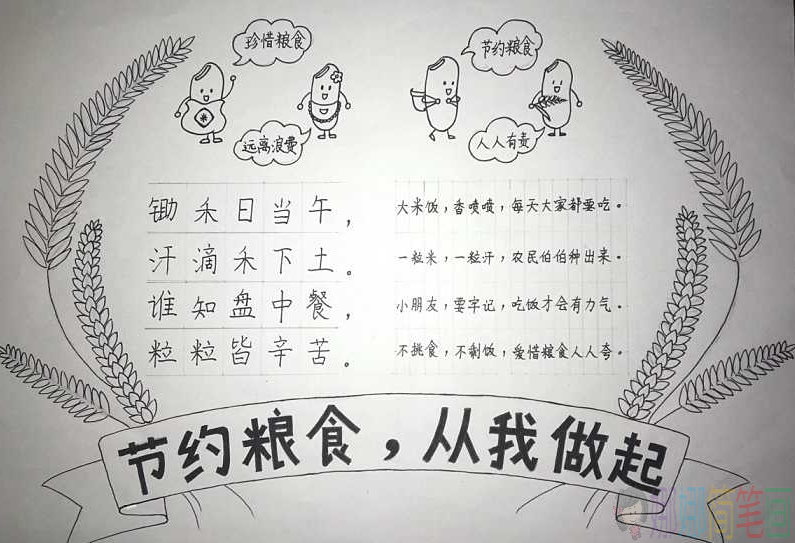 珍惜粮食
节约粮食
远离浪费
人人有责
锄禾日当午，
汗滴禾下土。
谁知盘中餐，
粒粒皆辛苦。
大米饭，香喷喷，每天大家都要吃。
一粒米，一粒汗，农民伯伯种出来。
小朋友，要牢记，吃饭才会有力气。
不挑食，不剩饭，爱惜粮食人人夸。
节约粮食，从我做起
简笔画